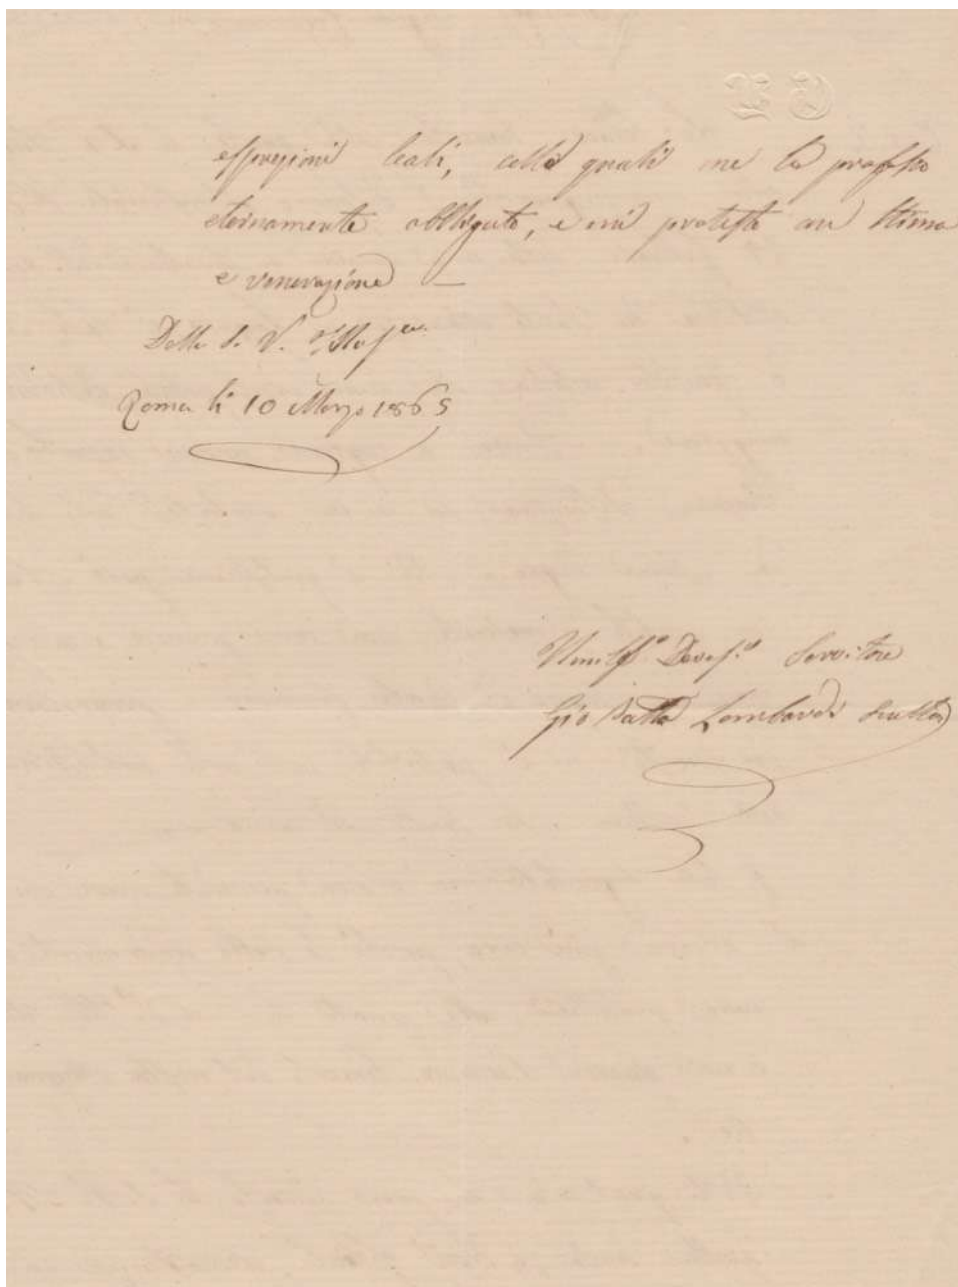 espressioni leali, colle quali me le professo
eternamente obbligato, e mi protesto con stima
e venerazione —
Della S. V. Ill
Roma li 10 Marzo 1865
Umilss.mo Devos.mo Servitore
Gio Batta Lombardi Scultore